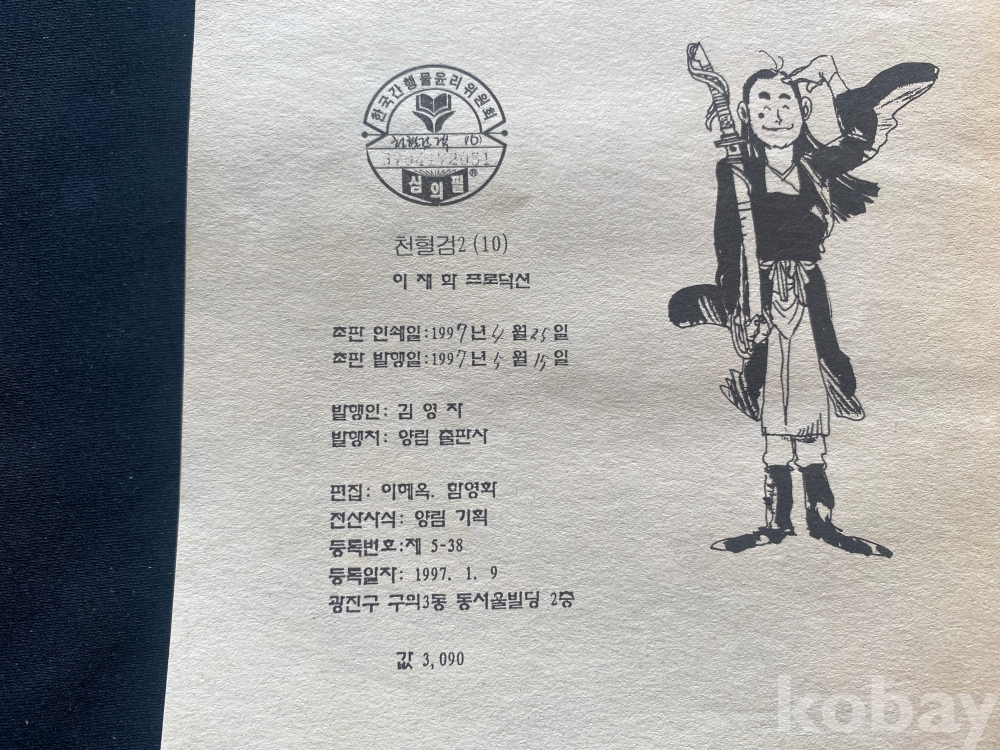 한국간행물윤리위원회
천혈검 2 (10)
심의필®
천혈검2 (10)
이 재 학 프로덕션
초판 인쇄일:1997년 4월 25일
초판 발행일:1997년 5월 15일
발행인: 김 영 자
발행처: 양림 출판사
편집: 이혜옥. 함영화
전산사식: 양림 기획
등록번호:제 5-38
등록일자: 1997. 1. 9
광진구 구의3동 동서울빌딩 2층
값 3,090
kobay